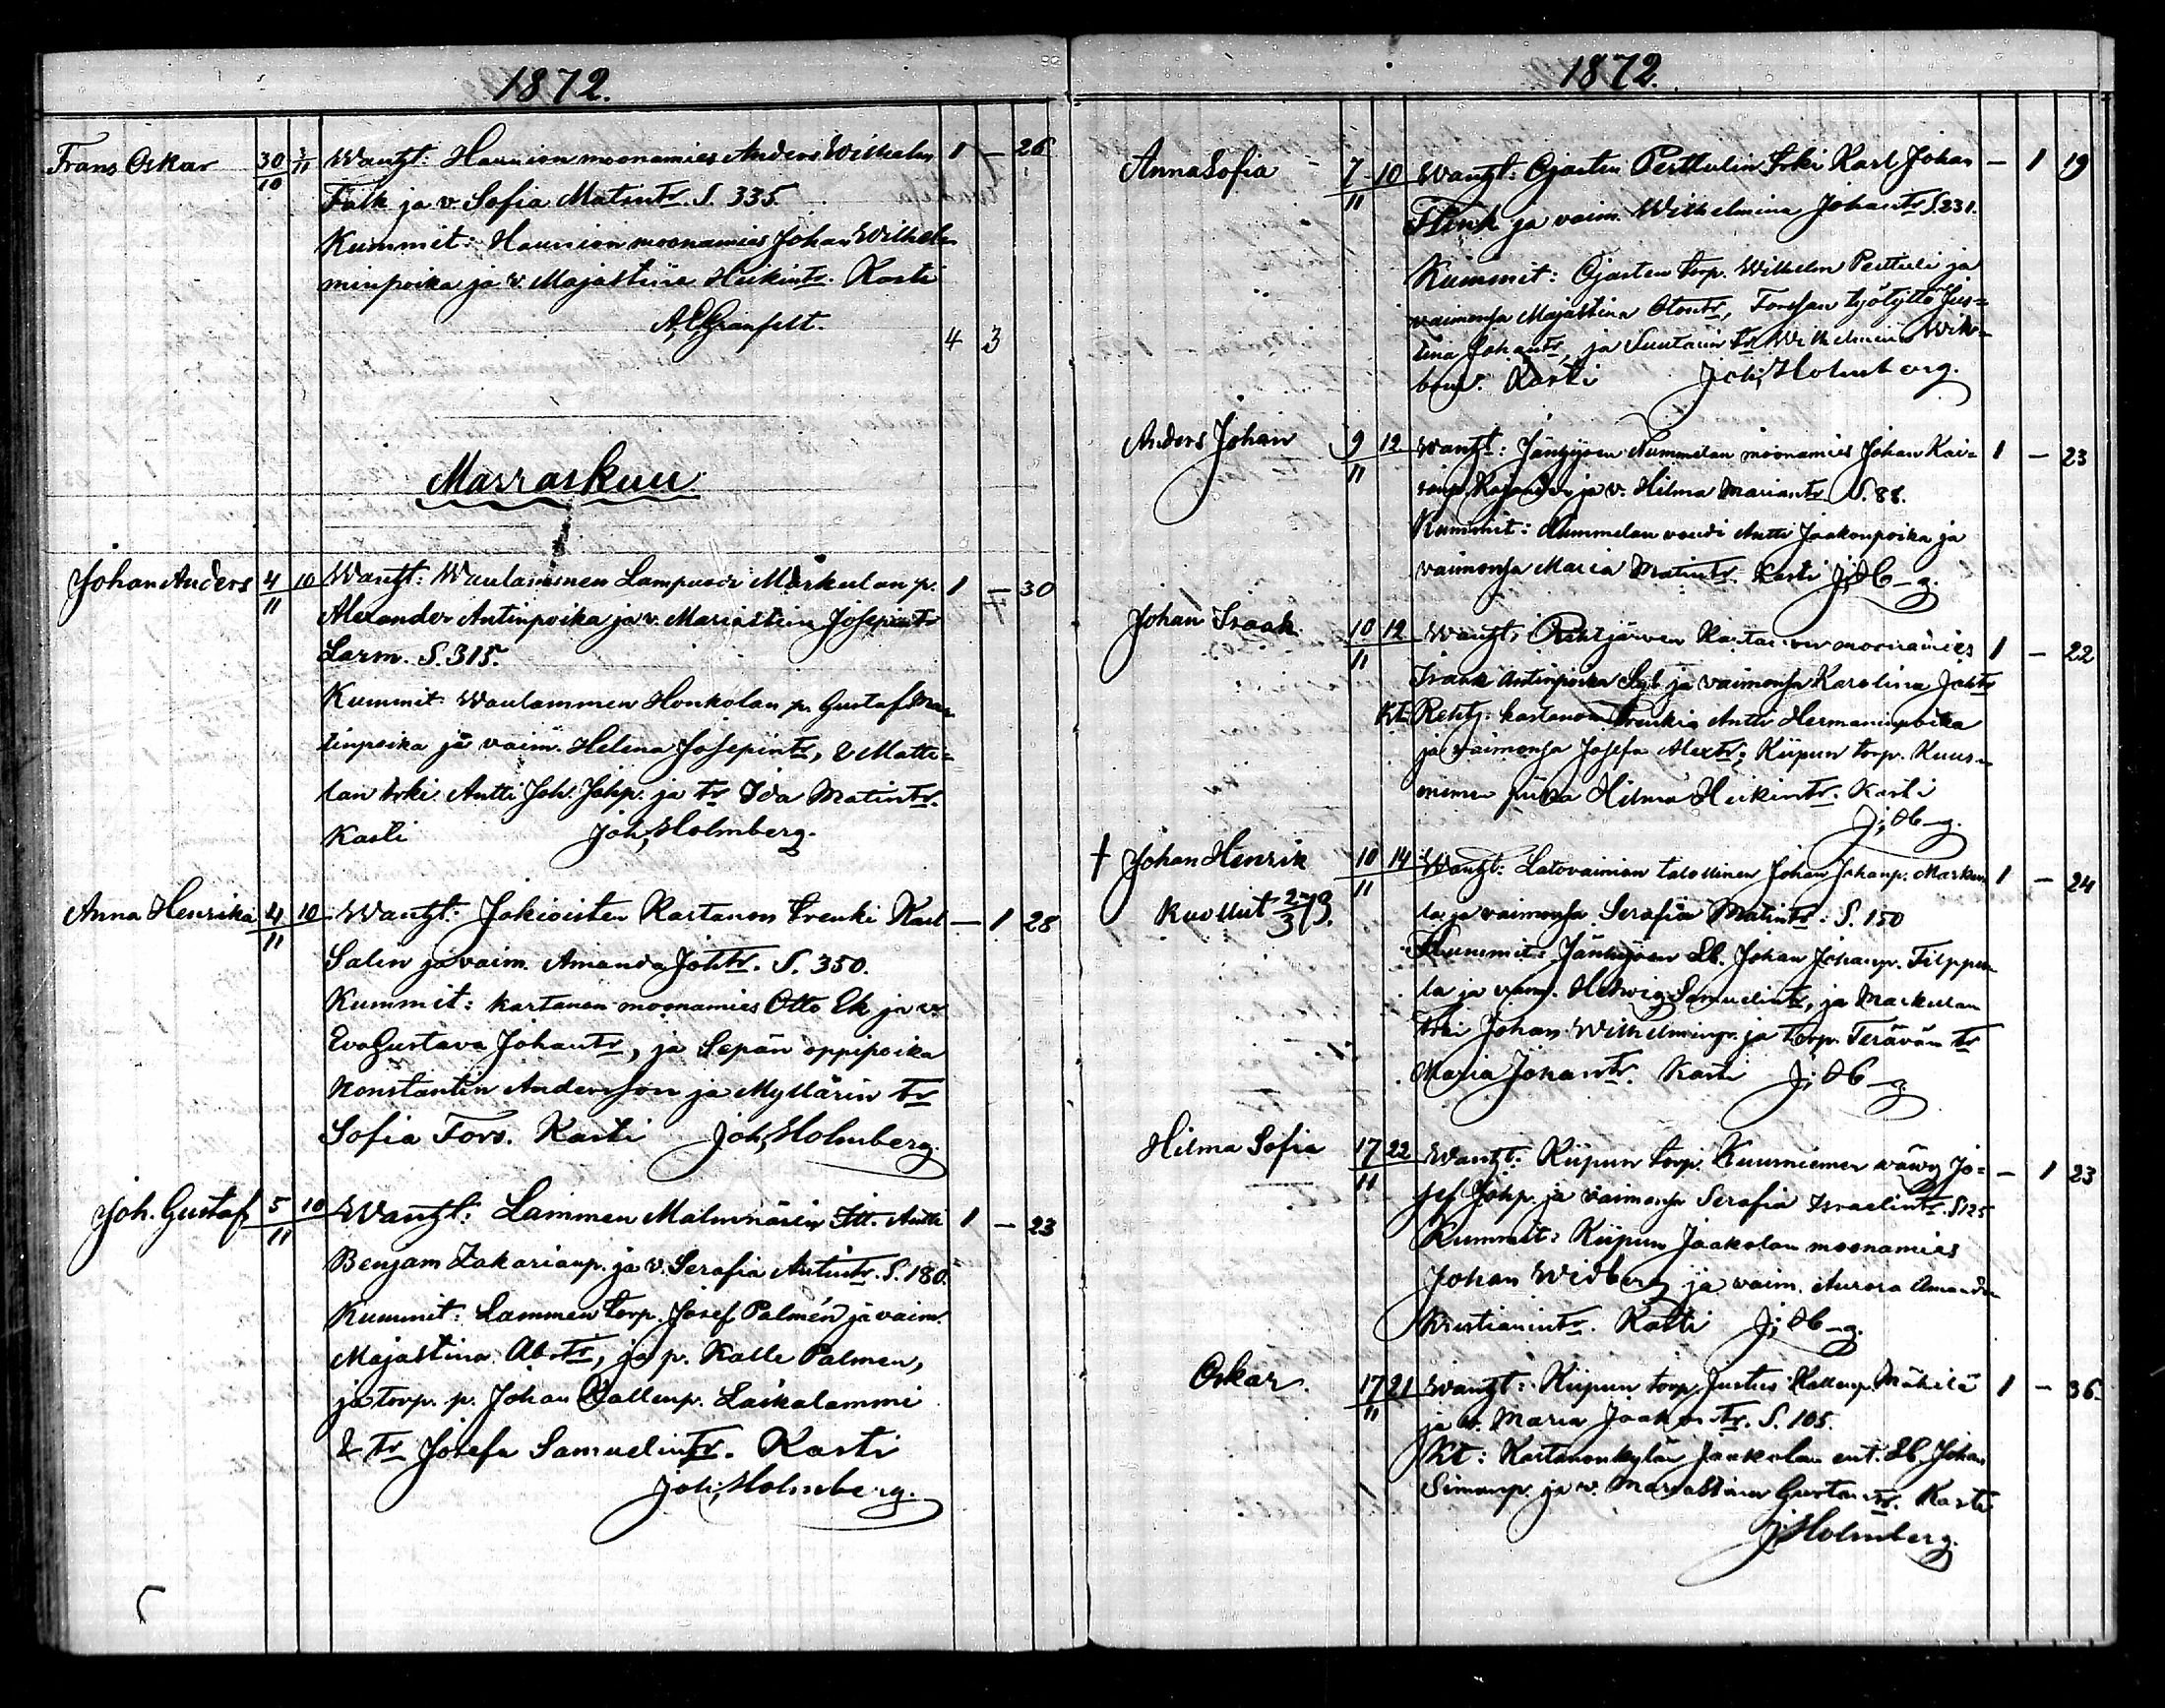 1872.
Frans Oskar 30/10 3/11 Wanht: Haunion moonamies Anders Wilhelm 1 — 26
Falk ja v. Sofia Matintr. S. 335.
Kummit: Haunion moonamies Johan Wilhel-
minpoika ja v. Majastiina Heikintr. Kasti
A. E. Granfelt.
4 3
Marraskuu
Johan Anders 4/11 10 Wanht: Waulammen Lampuodi Markulan p. 1 — 30
Alexander Antinpoika ja v. Mariastiina Josepintr
Larm. S. 315.
Kummit: Waulammen Honkolan p. Gustaf Mar-
tinpoika ja vaim. Helena Josepintr, & Matti-
lan trki Antti Joh. Johp. ja tr Ida Matintr.
Kasti Joh. Holmberg.
Anna Henrika 4/11 10 Wanht: Jokioisten Kartanon trenki Karl — 1 28
Salin ja vaim. Amanda Johtr. S. 350.
Kummit: kartanon moonamies Otto Ek ja v.
Eva Gustava Johantr, ja Sepän oppipoika
Konstantin Andersson ja Myllärin tr
Sofia Fors. Kasti Joh. Holmberg.
Joh. Gustaf 5/11 10 Wanht: Lammen Malmnärin Itt. Antti 1 — 23
Benjam Zakarianp. ja v. Serafia Antintr. S. 180.
Kummit: Lammen torp. Josef Palmén ja vaim.
Majastina Ab.tr, ja p. Kalle Palmen,
ja torp. p. Johan Kallenp. Laikalammi
& tr Josefa Samuelintr. Kasti
Joh. Holmberg.
1872.
Anna Sofia 7/11 10 Wanht: Ojasten Perttulin trki Karl Johan — 1 19
Flink ja vaim. Wilhelmina Johantr S. 231.
Kummit: Ojasten torp. Wilhelm Perttuli ja
vaimonsa Majastina Otontr, Forssan työtyttö Jus-
tina Johantr, ja Suutarin tr Wilhelmina Wik-
bom. Kasti Joh. Holmberg.
Anders Johan 9/11 12 Wanht: Jänhijoen Nummelan moonamies Johan Kai- 1 — 23
ja v. Hilma Mariantr S. 88.
Kummit: Nummelan voudi Antti Jaakonpoika ja
vaimonsa Maria Matintr. Kasti J. H—g.
Johan Isaak 10/11 12 Wanht: Rehtjärven Kartanon moonamies 1 — 22
Isaak Antinpoika ja vaimonsa Karolina Johtr
Kt. Rehtj. kartanon trenkiä Antti Hermaninpoika
ja vaimonsa Josefa Alextr; Kiipun torp. Kuus-
niemen piika Hilma Heikintr. Kasti
J. H—g.
† Johan Henrik 10/11 14 Wanht: Latovainion talollinen Johan Johanp. Marku- 1 — 24
Kuollut 27/3 73. la ja vaimonsa Serafia Matintr. S. 150
Kummit: Jänhijoen Lb. Johan Johanp. Filppu-
la ja vaim. Hedwig Samuelintr, ja Markulan
trki Johan Wilhelminp. ja torp. Terävän tr
Maria Johantr. Kasti J. H—g
Hilma Sofia 17/11 22 Wanht: Kiipun torp. Kuusniemen wäwy Jo- — 1 23
sef Johp. ja vaimonsa Serafia Israelintr. S 125
Kummit: Kiipun Jaakolan moonamies
Johan Widberg ja vaim. Aurora Amanda
Kristianintr. Kasti J. H—g.
Oskar 17/11 21 Wanht: Kiipun torp. Justus Kallenp. Mäkilä 1 — 36
ja v. Maria Jaakontr. S. 105.
Kt: Kartanonkylän Jaakolan ent. Lb. Johan
Simonp. ja v. Mariastina Gustavtr. Kasti
J. Holmberg.